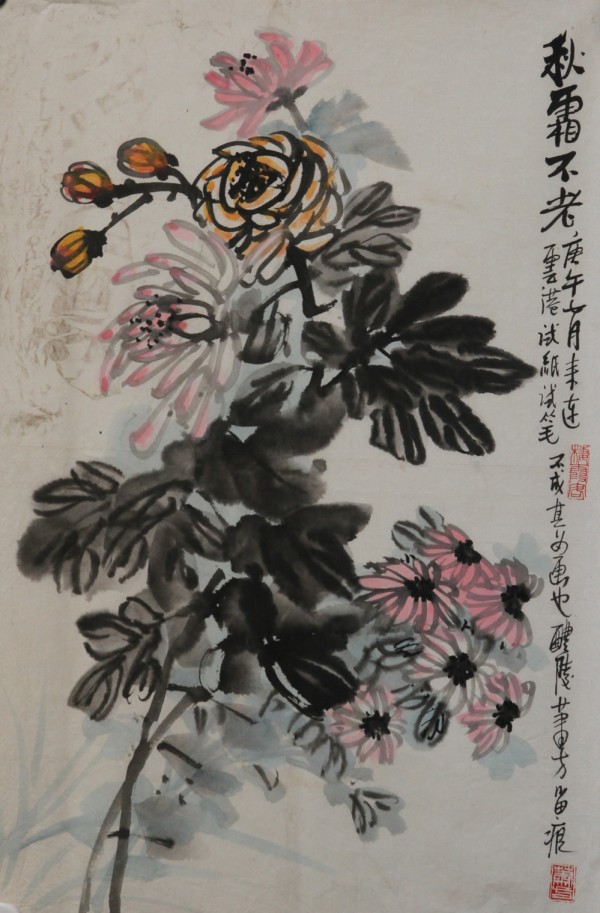 秋霜不老
庚午七月来连
雲港试紙试笔
不成其为画也醴陵
留痕